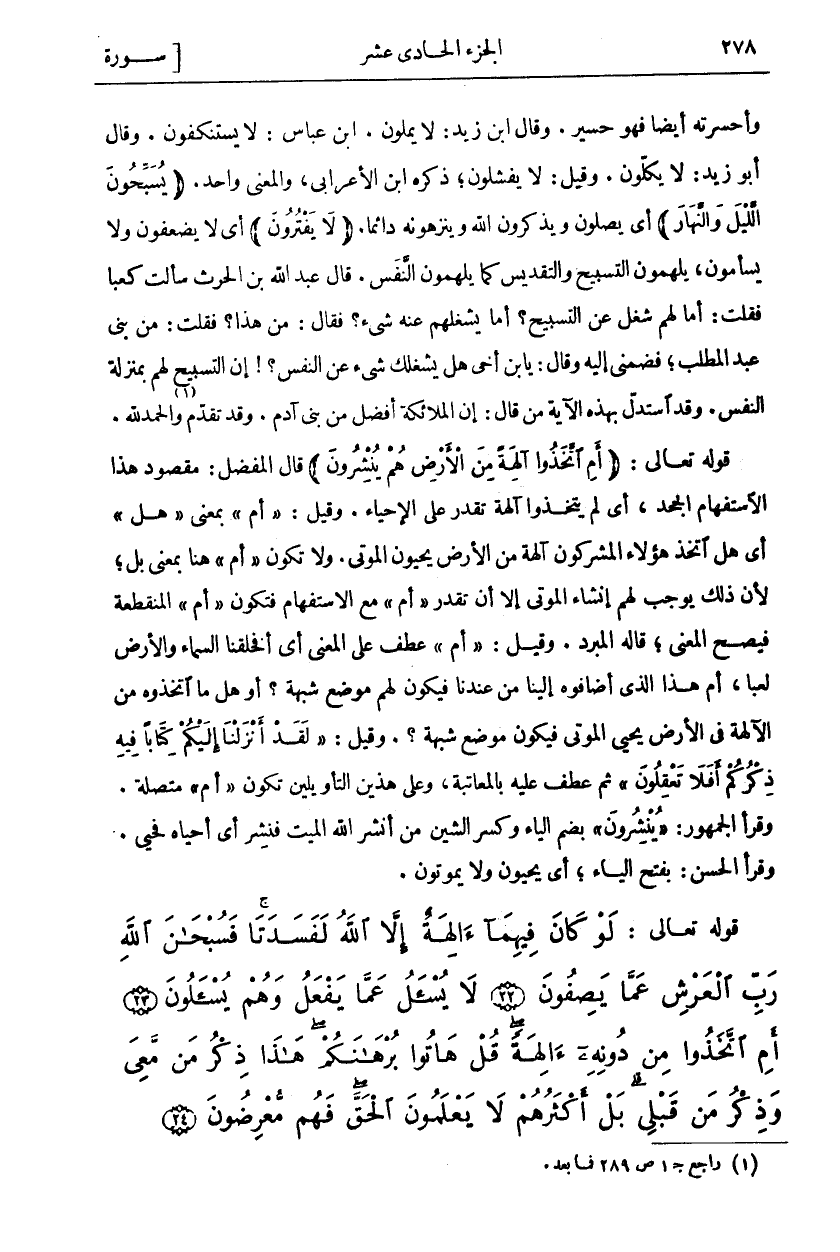 ٢٧٨ الجزء الحادى عشر [ ســورة
وأحسرته أيضا فهو حسير . وقال ابن زيد: لا يملون . ابن عباس : لا يستنكفون . وقال
أبو زيد: لا يكلّون . وقيل: لا يفشلون؛ ذكره ابن الأعرابى، والمعنى واحد. ﴿ يُسَبِّحُونَ
الَّيْلَ وَالنَّهَارَ ﴾ أى يصلون ويذكرون الله وينزهونه دائما. ﴿ لَا يَفْتُرُونَ ﴾ أى لا يضعفون ولا
يسأمون، يلهمون التسبيح والتقديس كما يلهمون النَّفَس . قال عبد الله بن الحرث سألت كعبا
فقلت: أما لهم شغل عن التسبيح؟ أما يشغلهم عنه شىء؟ فقال : من هذا؟ فقلت: من بنى
عبد المطلب؛ فضمنى إليه وقال: يابن أخى هل يشغلك شىء عن النفس؟! إن التسبيح لهم بمنزلة
النفس. وقد آستدلّ بهذه الآية من قال: إن الملائكة أفضل من بنى آدم . وقد تقدّم (١) والحمد لله .
قوله تعالى : ﴿ أَمِ ٱتَّخَذُوا آلِهَةً مِنَ الْأَرْضِ هُمْ يُنْشِرُونَ ﴾ قال المفضل: مقصود هذا
الآستفهام الجحد ، أى لم يتخذوا آلهة تقدر على الإحياء . وقيل : « أم » بمعنى « هـل »
أى هل آتخذ هؤلاء المشركون آلهة من الأرض يحيون الموتى. ولا تكون « أم » هنا بمعنى بل؛
لأن ذلك يوجب لهم إنشاء الموتى إلا أن تقدر « أم » مع الاستفهام فتكون « أم » المنقطعة
فيصح المعنى ؛ قاله المبرد . وقيـل : « أم » عطف على المعنى أى أفخلقنا السماء والأرض
لعبا ، أم هـذا الذى أضافوه إلينا من عندنا فيكون لهم موضع شبهة ؟ أو هل ما آتخذوه من
الآلهة فى الأرض يحيى الموتى فيكون موضع شبهة ؟ . وقيل : « لَقَدْ أَنْزَلْنَا إِلَيْكُمْ كِتَاباً فِيهِ
ذِكْرُكُمْ أَفَلَا تَعْقِلُونَ » ثم عطف عليه بالمعاتبة، وعلى هذين التأويلين تكون « أم» متصلة .
وقرأ الجمهور: «يُنْشِرُونَ» بضم الياء وكسر الشين من أنشر الله الميت فنشر أى أحياه فحيى .
وقرأ الحسن: بفتح اليـاء ؛ أى يحيون ولا يموتون .
قوله تعـالى : لَوْ كَانَ فِيهِمَآ ءَالِهَةٌ إِلَّا ٱللَّهُ لَفَسَدَتَا ۚ فَسُبْحَـٰنَ ٱللَّهِ
رَبِّ ٱلْعَرْشِ عَمَّا يَصِفُونَ ﴿٢٢﴾ لَا يُسْـَٔلُ عَمَّا يَفْعَلُ وَهُمْ يُسْـَٔلُونَ ﴿٢٣﴾
أَمِ ٱتَّخَذُوا مِن دُونِهِۦٓ ءَالِهَةً ۖ قُلْ هَاتُوا بُرْهَـٰنَكُمْ ۖ هَـٰذَا ذِكْرُ مَن مَّعِىَ
وَذِكْرُ مَن قَبْلِى ۗ بَلْ أَكْثَرُهُمْ لَا يَعْلَمُونَ ٱلْحَقَّ ۖ فَهُم مُّعْرِضُونَ ﴿٢٤﴾
(١) راجع جـ ١ ص ٢٨٩ فما بعد .